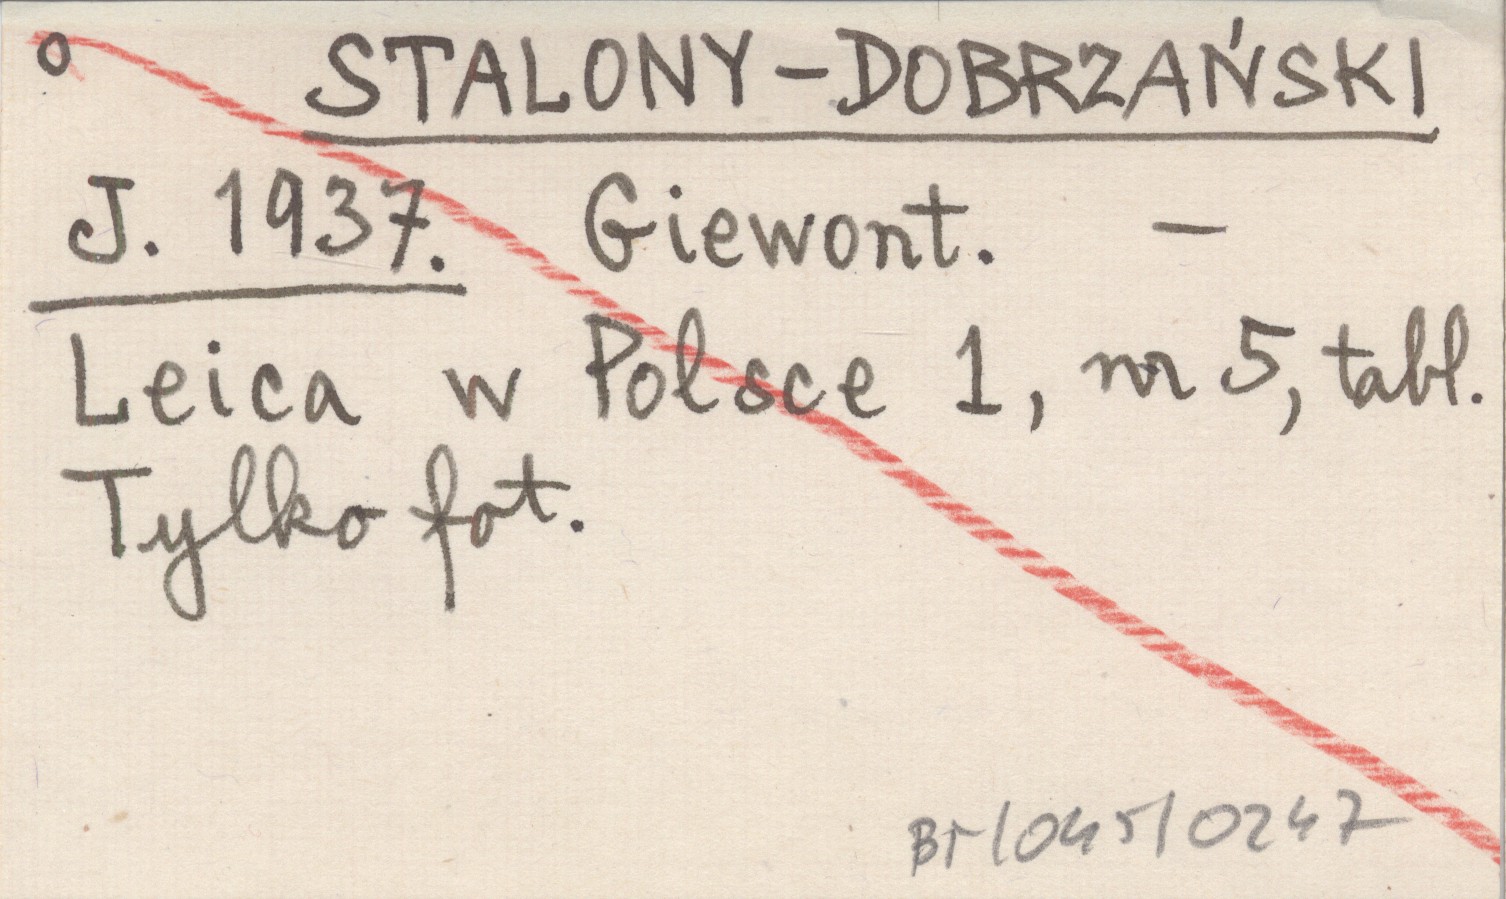 o STALONY-DOBRZAŃSKI
J. 1937. Giewont. -
Leica w Polsce 1, nr 5, tabl.
Tylko fot.
BT/045/0247